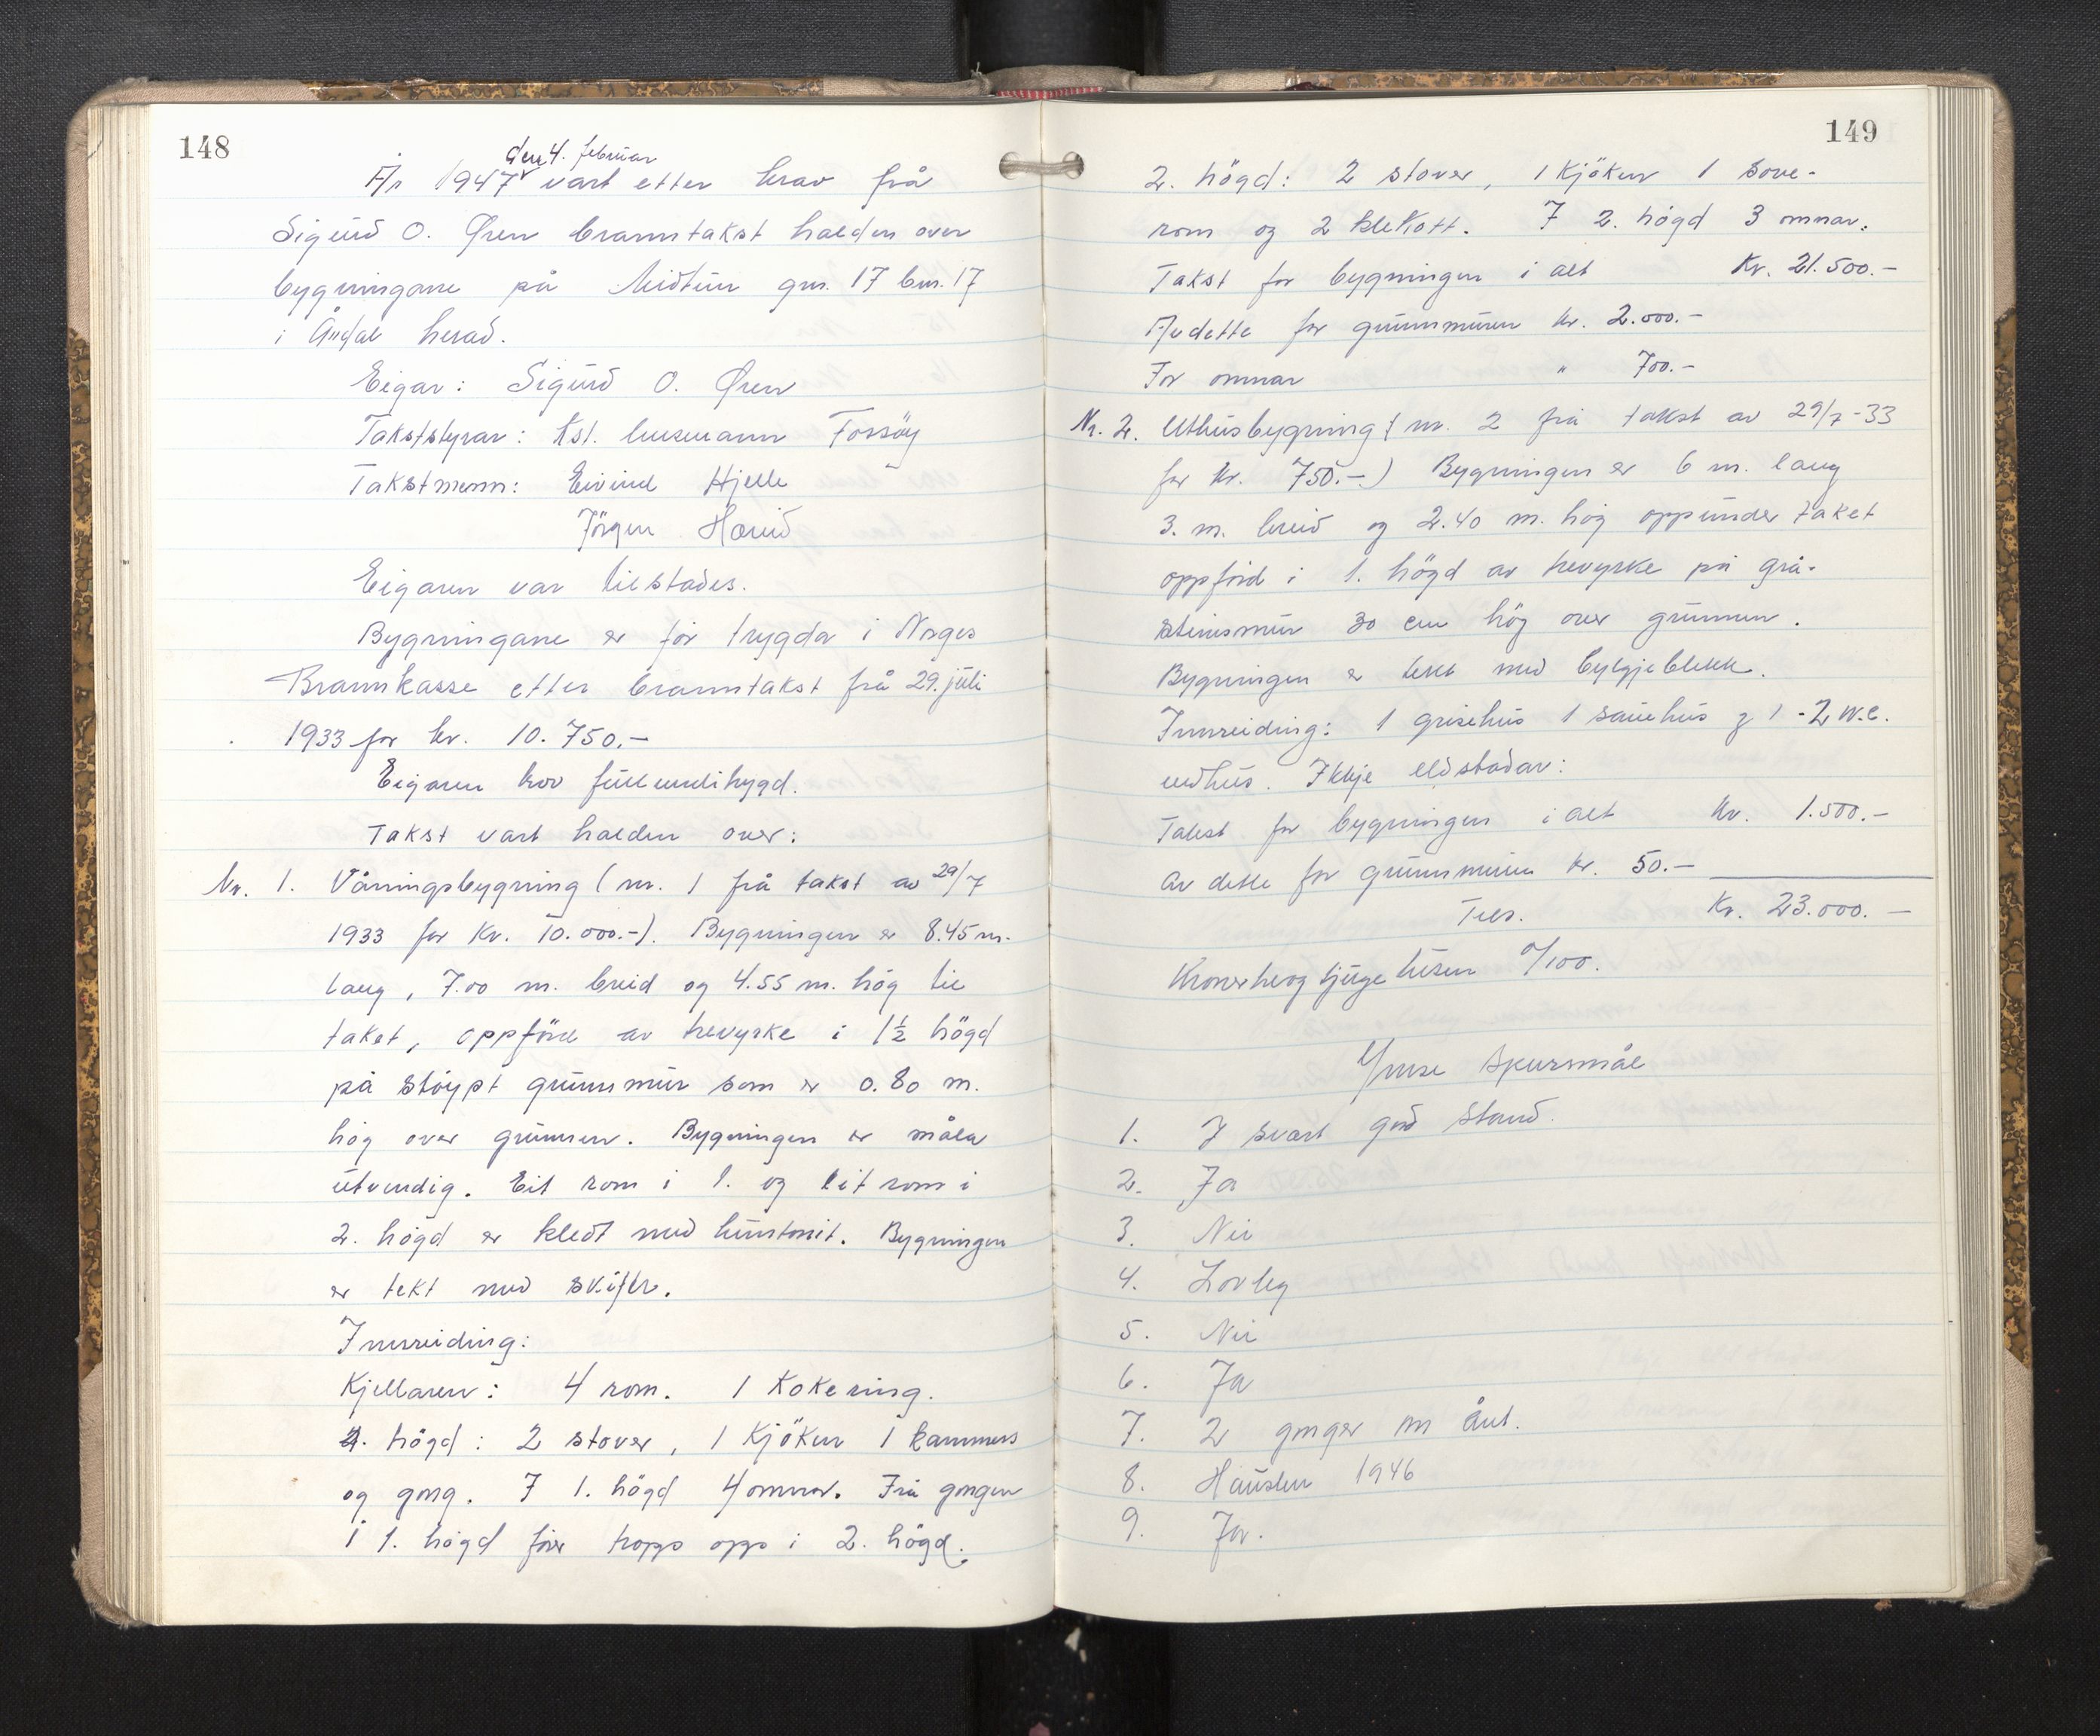 148
den 4. februar
År 1947 vart etter krav frå
Sigurd O. Øren branntakst halden over
bygningane på Midtun gnr. 17 bnr. 17
i herad.
Eigar: Sigurd O. Øren
Takststyrar: kst. lensmann Forsøy
Takstmenn: Eivind Hjelle
Jörgen
Eigaren var tilstades.
Bygningane er för trygda i Norges
Brannkasse etter branntakst frå 29. juli
1933 for kr. 10.750.-
Eigaren krov fullverditrygd.
Takst vart halden over:
Nr. 1. Våningsbygning (nr. 1 frå takst av 29/7
1933 for Kr. 10.000.-). Bygningen er 8.45 m.
lang, 7.00 m. breid og 4.55 m. hög til
taket, oppförd av trevyrke i 1½ högd
på stöypt grunnmur som er 0.80 m.
hög over grunnen. Bygningen er måla
utvendig. Eit rom i 1. og eit rom i
2. högd er kledt med huntonit. Bygningen
er tekt med skifer.
Innreiding:
Kjellaren: 4 rom. 1 Kokering.
1. högd: 2 stover, 1 Kjöken 1 kammers
og gong. I 1. högd 4 omnar. Frå gongen
i 1. högd förer tropp opp i 2. högd.
149
2. högd: 2 stover, 1 Kjöken 1 sove-
rom og 2 klekott. I 2. högd 3 omnar.
Takst for bygningen i alt Kr. 21.500.-
Av dette for grunnmuren kr. 2.000.-
For omnar " 700.-
Nr. 2. Uthusbygning (nr. 2 frå takst av 29/7-33
for kr. 750.-) Bygningen er 6 m. lang
3. m. breid og 2.40 m. hög oppunder taket
oppförd i 1. högd av trevyrke på grå-
steinsmur 30 cm hög over grunnen.
Bygningen er tekt med bylgjeblekk.
Innreiding: 1 grisehus 1 sauehus og 1 - 2 W.C.
vedhus. Ikkje eldstadar:
Takst for bygningen i alt Kr. 1.500.-
Av dette for grunnmuren kr. 50.-
Tils. Kr. 23.000.-
Kroner tjuge tusen 0/100.
Ymse spursmål
1. I svært god stand.
2. Ja
3. Nei
4. Lovleg
5. Nei
6. Ja
7. 2 gonger om året.
8. Hausten 1946
9. Ja.